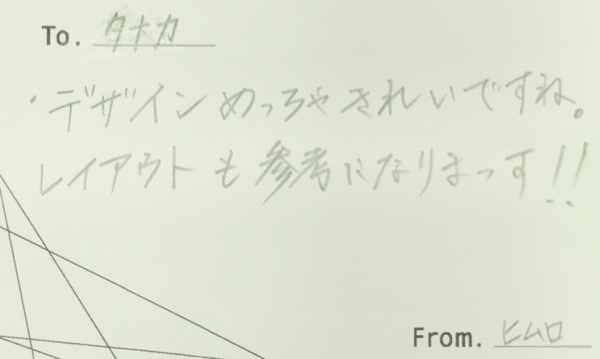 To. タナカ
・デザインめっちゃきれいですね。
レイアウトも参考になりまっす!!
From. ヒムロ